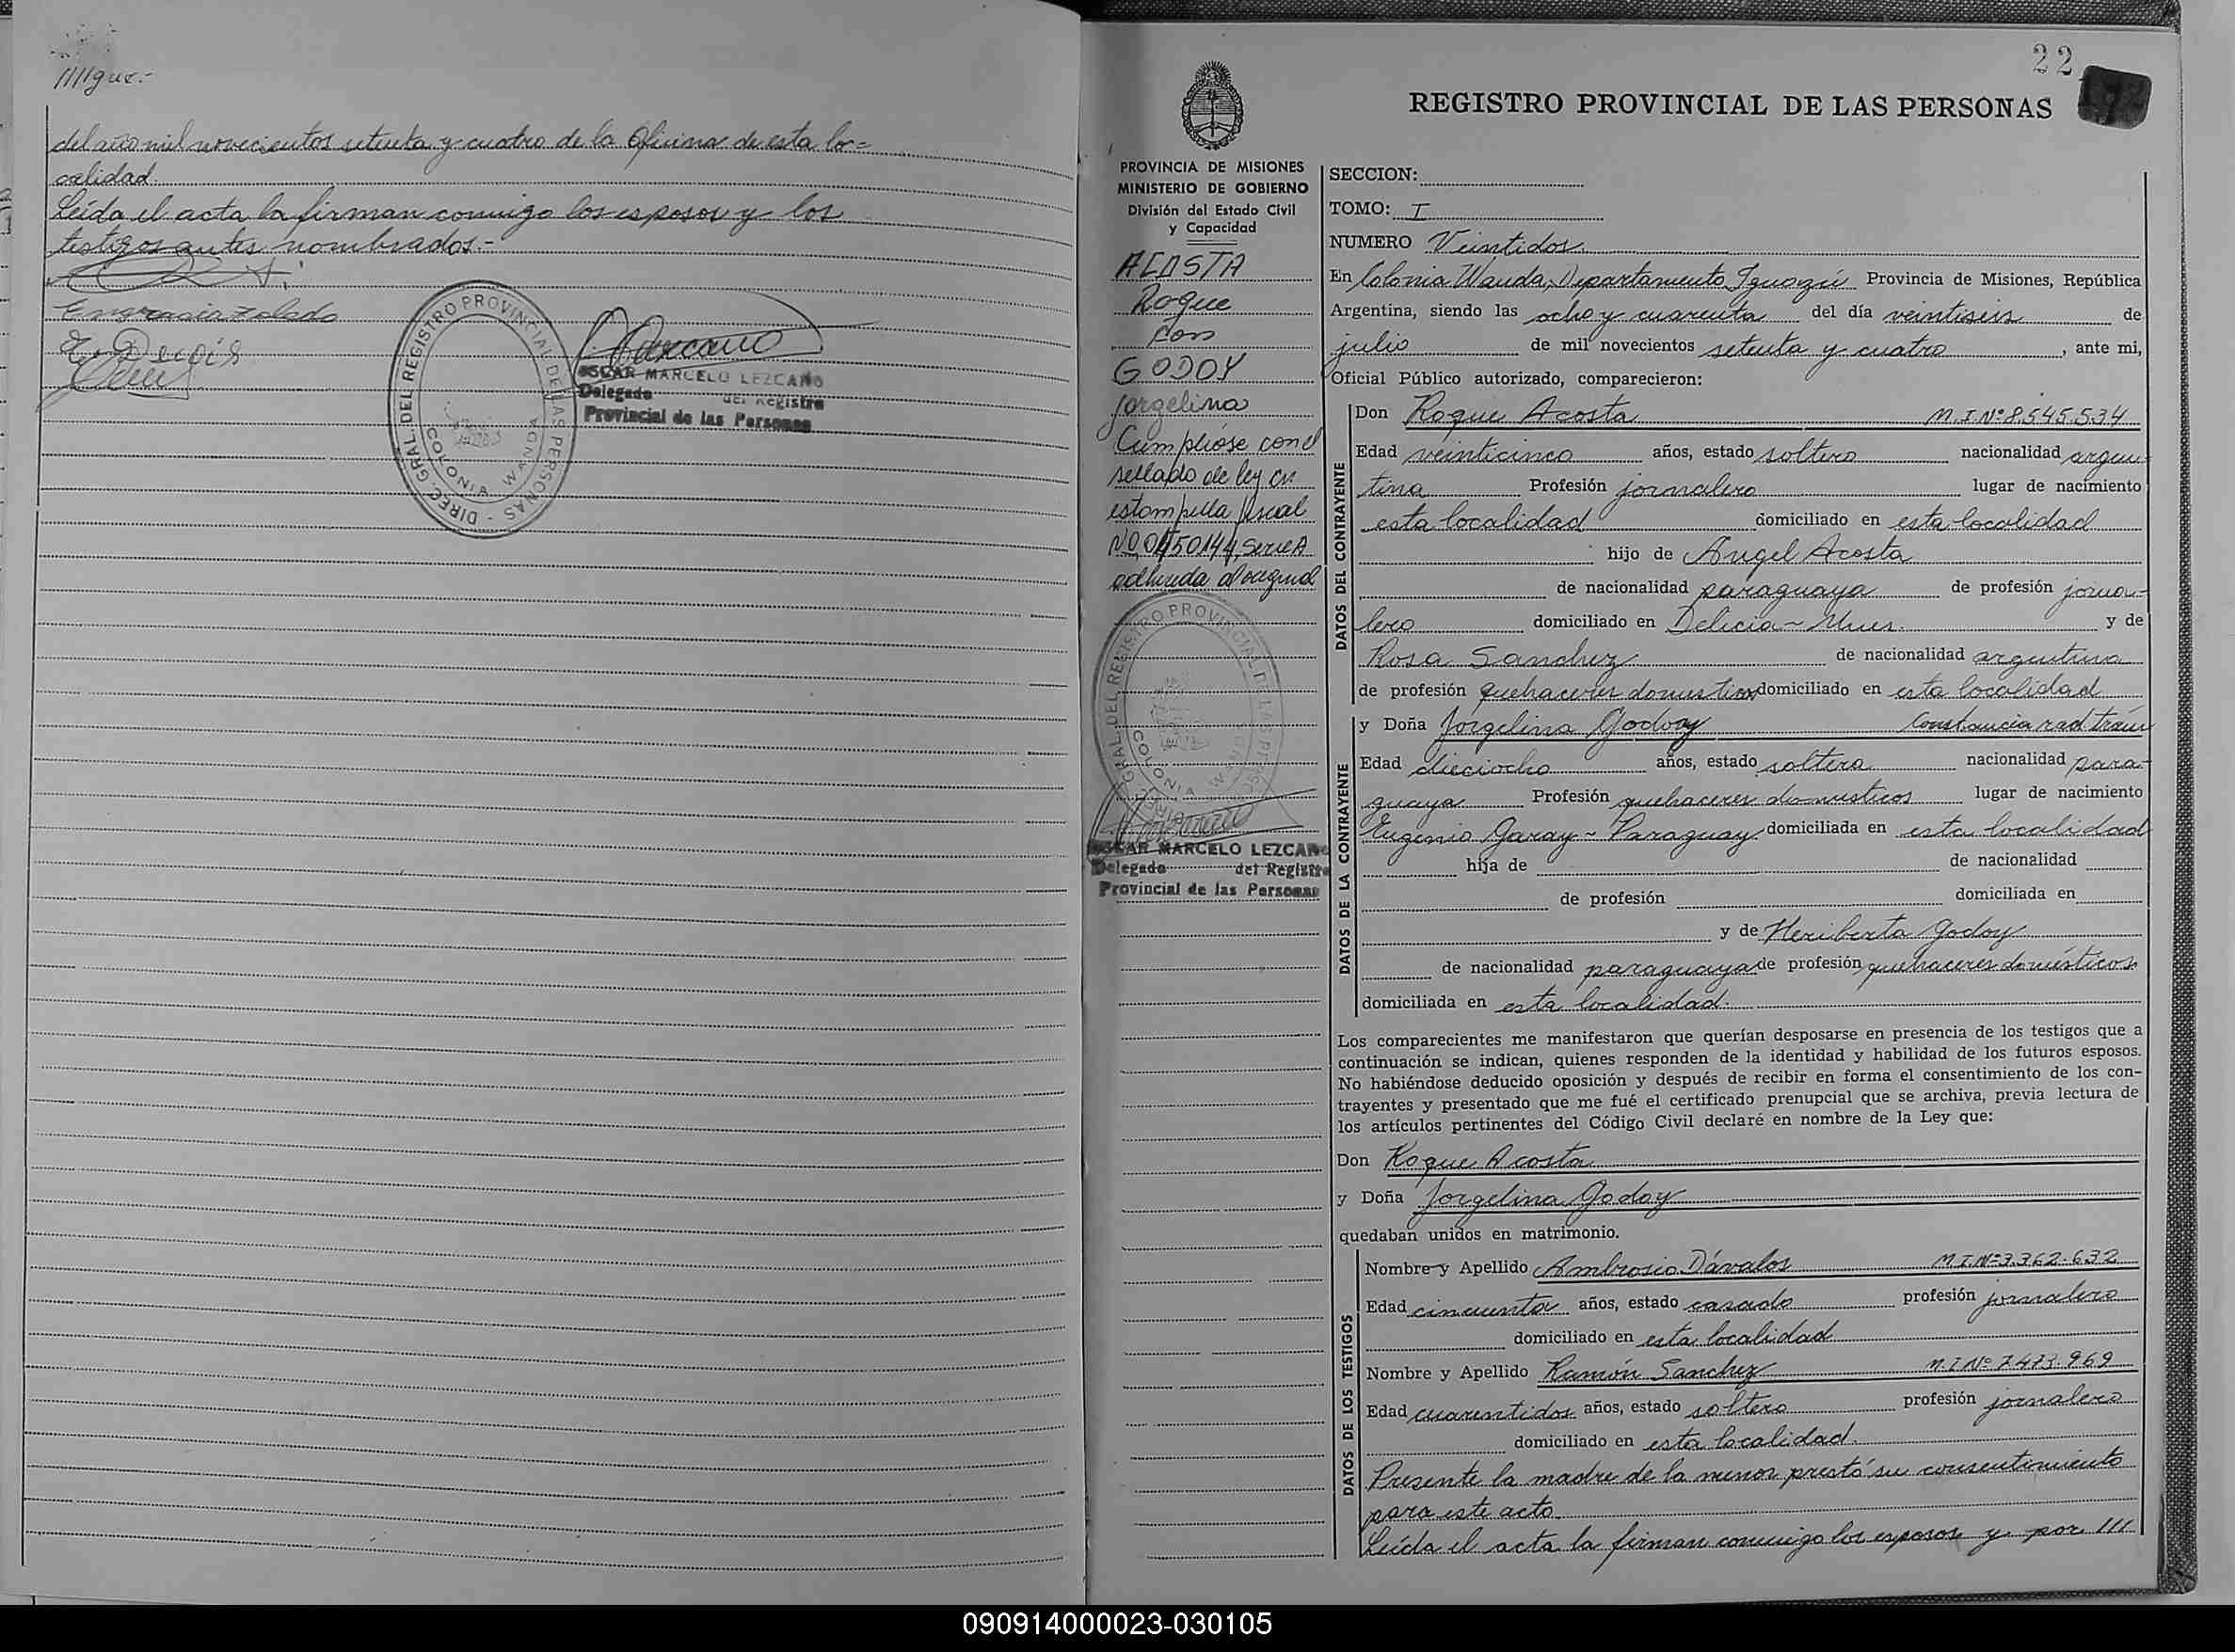 del año mil novecientos setenta y cuatro de la Oficina de esta lo=
calidad.
Leída el acta la firman conmigo los esposos y los
testigos antes nombrados.-
DIREC. GRAL. DEL REGISTRO PROVINCIAL DE LAS PERSONAS -
COLONIA WANDA
OSCAR MARCELO LEZCANO
Delegado del Registro
Provincial de las Personas
22
REGISTRO PROVINCIAL DE LAS PERSONAS
PROVINCIA DE MISIONES
MINISTERIO DE GOBIERNO
División del Estado Civil
y Capacidad
ACOSTA
Roque
con
GODOY
Jorgelina
Cúmpliose con el
sellado de ley en
estampilla fiscal
Serie A
adherida al original
REGISTRO PROVINCIAL DE LAS PERSONAS
COLONIA WANDA
OSCAR MARCELO LEZCANO
Delegado del Registro
Provincial de las Personas
SECCION:
TOMO: I
NUMERO Veintidos
En Colonia Wanda, Departamento Iguazú Provincia de Misiones, República
Argentina, siendo las ocho y cuarenta del día veintiseis de
julio de mil novecientos setenta y cuatro, ante mi,
Oficial Público autorizado, comparecieron:
DATOS DEL CONTRAYENTE
Don Roque Acosta M.I.Nº 8.545.534
Edad veinticinco años, estado soltero nacionalidad argen-
tina Profesión jornalero lugar de nacimiento
esta localidad domiciliado en esta localidad
hijo de Angel Acosta
de nacionalidad paraguaya de profesión jorna-
lero domiciliado en Delicia - Mnes. y de
Rosa Sanchez de nacionalidad argentina
de profesión quehaceres domesticos domiciliado en esta localidad
DATOS DE LA CONTRAYENTE
y Doña Jorgelina Godoy Constancia rad. trám
Edad dieciocho años, estado soltera nacionalidad para-
guaya Profesión quehaceres domesticos lugar de nacimiento
Eugenio Garay - Paraguay domiciliada en esta localidad
hija de de nacionalidad
de profesión domiciliada en
y de Heriberta Godoy
de nacionalidad paraguaya de profesión quehaceres domésticos
domiciliada en esta localidad.
Los comparecientes me manifestaron que querían desposarse en presencia de los testigos que a
continuación se indican, quienes responden de la identidad y habilidad de los futuros esposos.
No habiéndose deducido oposición y después de recibir en forma el consentimiento de los con-
trayentes y presentado que me fué el certificado prenupcial que se archiva, previa lectura de
los artículos pertinentes del Código Civil declaré en nombre de la Ley que:
Don Roque Acosta
y Doña Jorgelina Godoy
quedaban unidos en matrimonio.
DATOS DE LOS TESTIGOS
Nombre y Apellido Ambrosio Dávalos M.I.Nº 3.362.632
Edad cincuenta años, estado casado profesión jornalero
domiciliado en esta localidad
Nombre y Apellido Ramón Sanchez M.I.Nº 7.473.969
Edad cuarentidos años, estado soltero profesión jornalero
domiciliado en esta localidad.
Presente la madre de la menor prestó su consentimiento
para este acto.
Leída el acta la firman conmigo los esposos y por ///
090914000023-030105